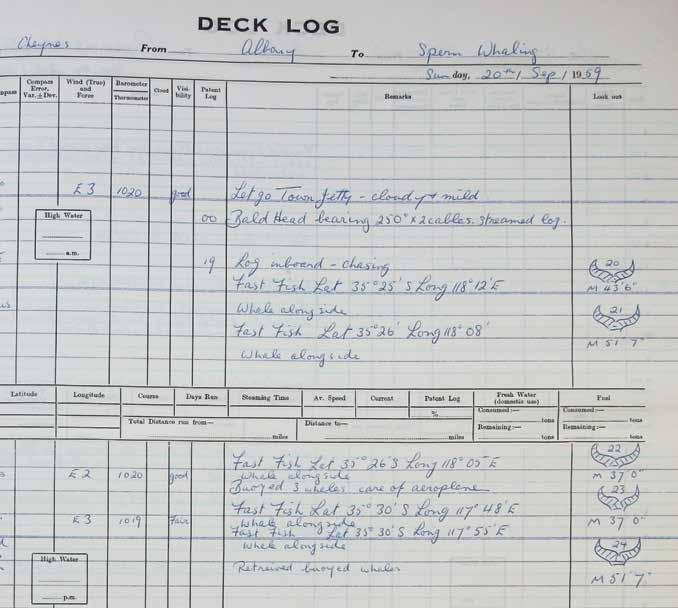 DECK LOG
Cheynes From Albany To Sperm Whaling
Sunday, 20th / Sep / 1959
Compass Error, Var. ± Dev. Wind (True) and Force Barometer Thermometer Cloud Visibility Patent Log Remarks Look out
E 3 1020 good Let go Town Jetty - cloudy & mild
High Water
a.m.
00 Bald Head bearing 250° x 2 cables. streamed log.
19 Log inboard - chasing
20
Fast Fish Lat 35° 25' S Long 118° 12' E
M 43' 6"
Whale alongside
21
Fast Fish Lat 35° 26' Long 118° 08'
M 51' 7"
Whale alongside
Latitude Longitude Course Days Run Steaming Time Av. Speed Current Patent Log Fresh Water (domestic use) Fuel
% Consumed:— tons Consumed:— tons
Total Distance run from— miles Distance to— miles Remaining:— tons Remaining:— tons
22
Fast Fish Lat 35° 26' S Long 118° 05' E
E 2 1020 good Whale alongside
M 37' 0"
Buoyed 3 whales care of aeroplane
23
Fast Fish Lat 35° 30' S Long 117° 48' E
E 3 1019 Fair Whale alongside
M 37' 0"
Fast Fish Lat 35° 30' S Long 117° 55' E
Whale alongside
24
High Water
p.m.
Retrieved buoyed whales
M 51' 7"